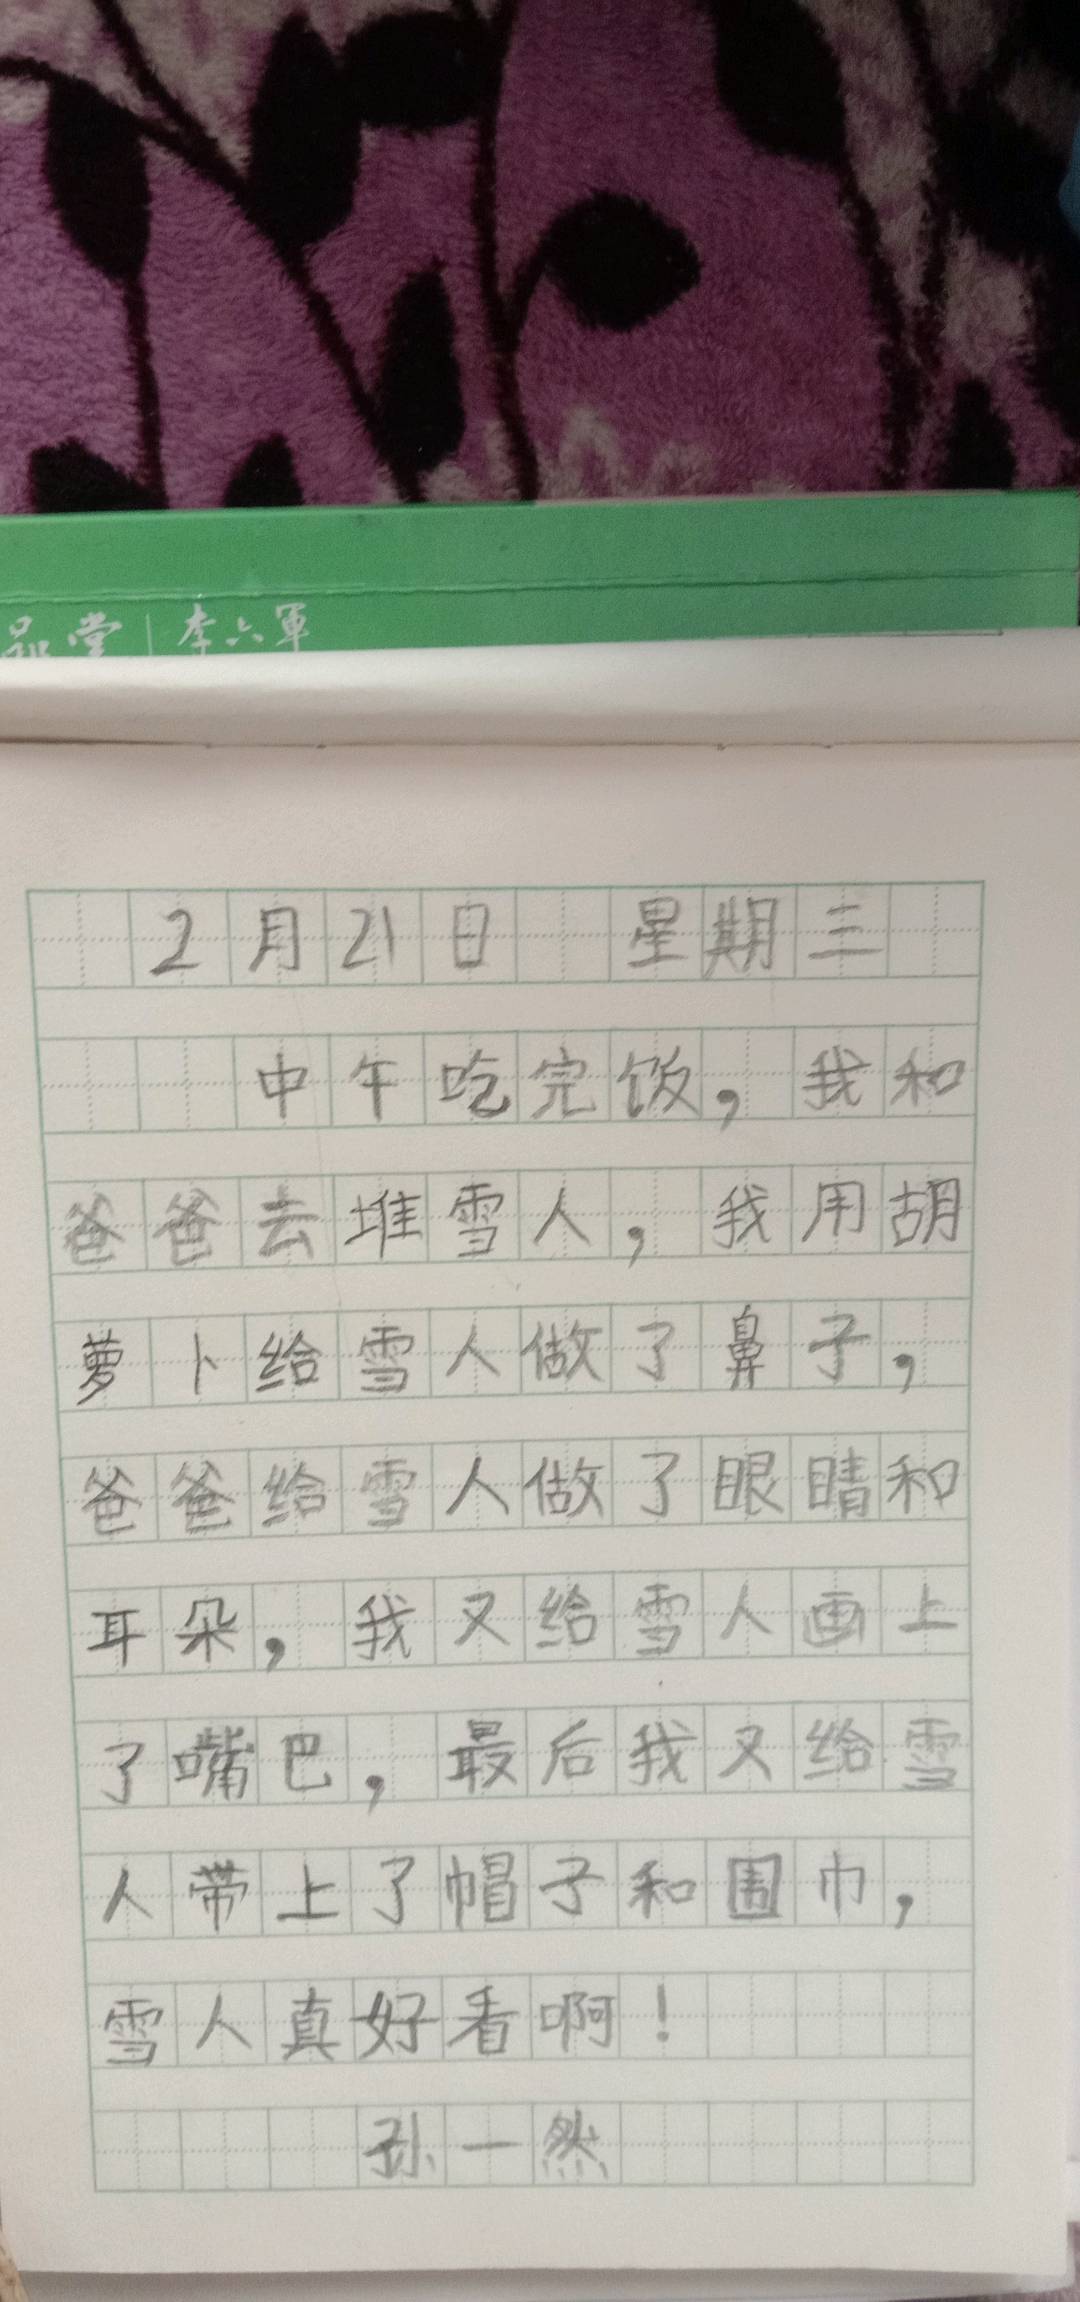 堂 | 李六軍
2月21日 星期三
中午吃完饭，我和
爸爸去堆雪人，我用胡
萝卜给雪人做了鼻子，
爸爸给雪人做了眼睛和
耳朵，我又给雪人画上
了嘴巴，最后我又给雪
人带上了帽子和围巾，
雪人真好看啊！
孙一然